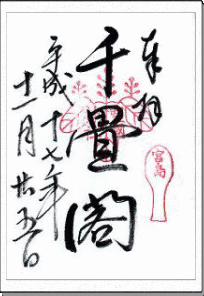 奉拝
千畳閣
平成十七年
十一月廿五日
宮島